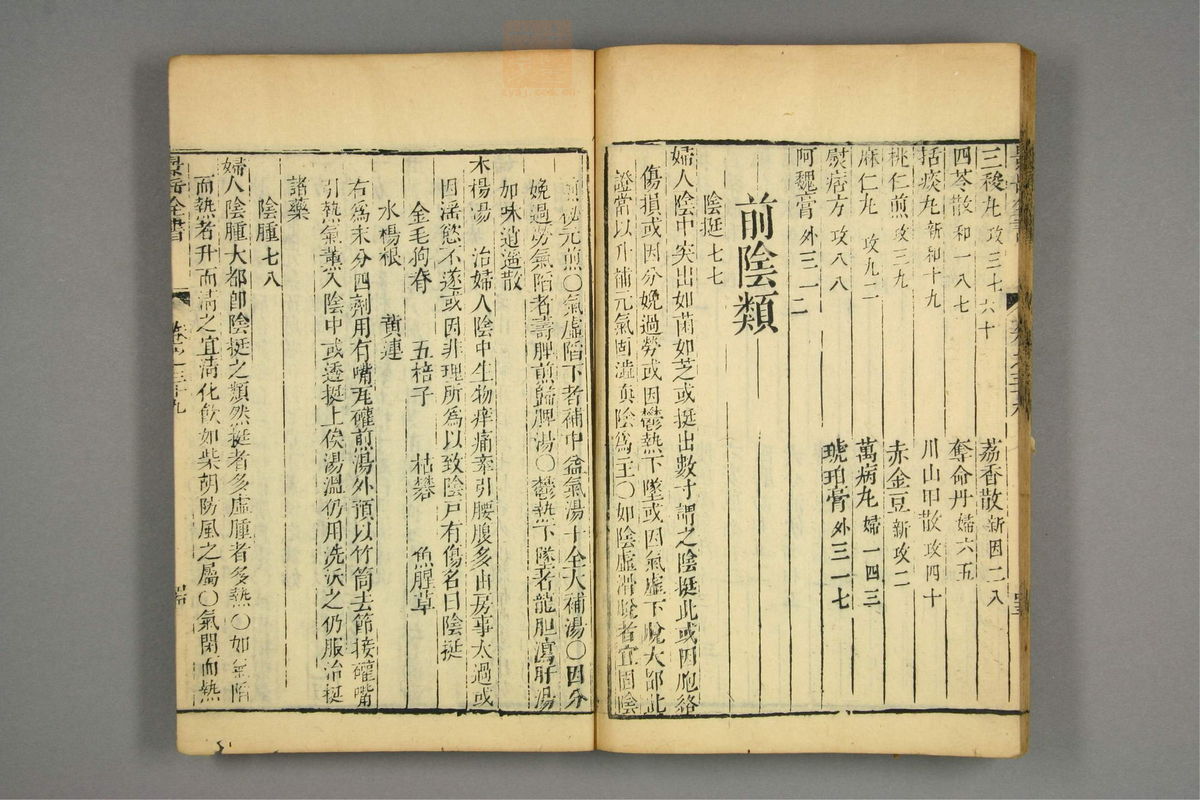 三稜丸 攻三七 六十 荔香散 新因二八
四苓散 和一八七 奪命丹 婦六五
括痰丸 新和十九 川山甲散 攻四十
桃仁煎 攻三九 赤金豆 新攻二
麻仁丸 攻九二 萬病丸 婦一四三
熨痞方 攻八八 琥珀膏 外三一七
阿魏膏 外三一二
前陰類
陰挺七七
婦人陰中突出如菌如芝或挺出數寸謂之陰挺此或因胞絡
傷損或因分娩過勞或因鬱熱下墜或因氣虛下脫大都此
證當以升補元氣固濇真陰為主○如陰虛滑脫者宜固陰
煎秘元煎○氣虛陷下者補中益氣湯十全大補湯○因分
娩過勞氣陷者壽脾煎歸脾湯○鬱熱下墜者龍胆瀉肝湯
加味逍遙散
水楊湯 治婦人陰中生物痒痛牽引腰腹多由房事太過或
因滛慾不遂或因非理所為以致陰戶有傷名曰陰挺
金毛狗脊 五棓子 枯礬 魚腥草
水楊根 黄連
右為末分四劑用有嘴瓦礶煎湯外預以竹筒去節接礶嘴
引熱氣薰入陰中或透挺上俟湯溫仍用洗沃之仍服治挺
諸藥
陰腫七八
婦人陰腫大都卽陰挺之類然挺者多虛腫者多熱○如氣陷
而熱者升而清之宜清化飲如柴胡防風之屬○氣閉而熱
景岳全書 卷之三十九